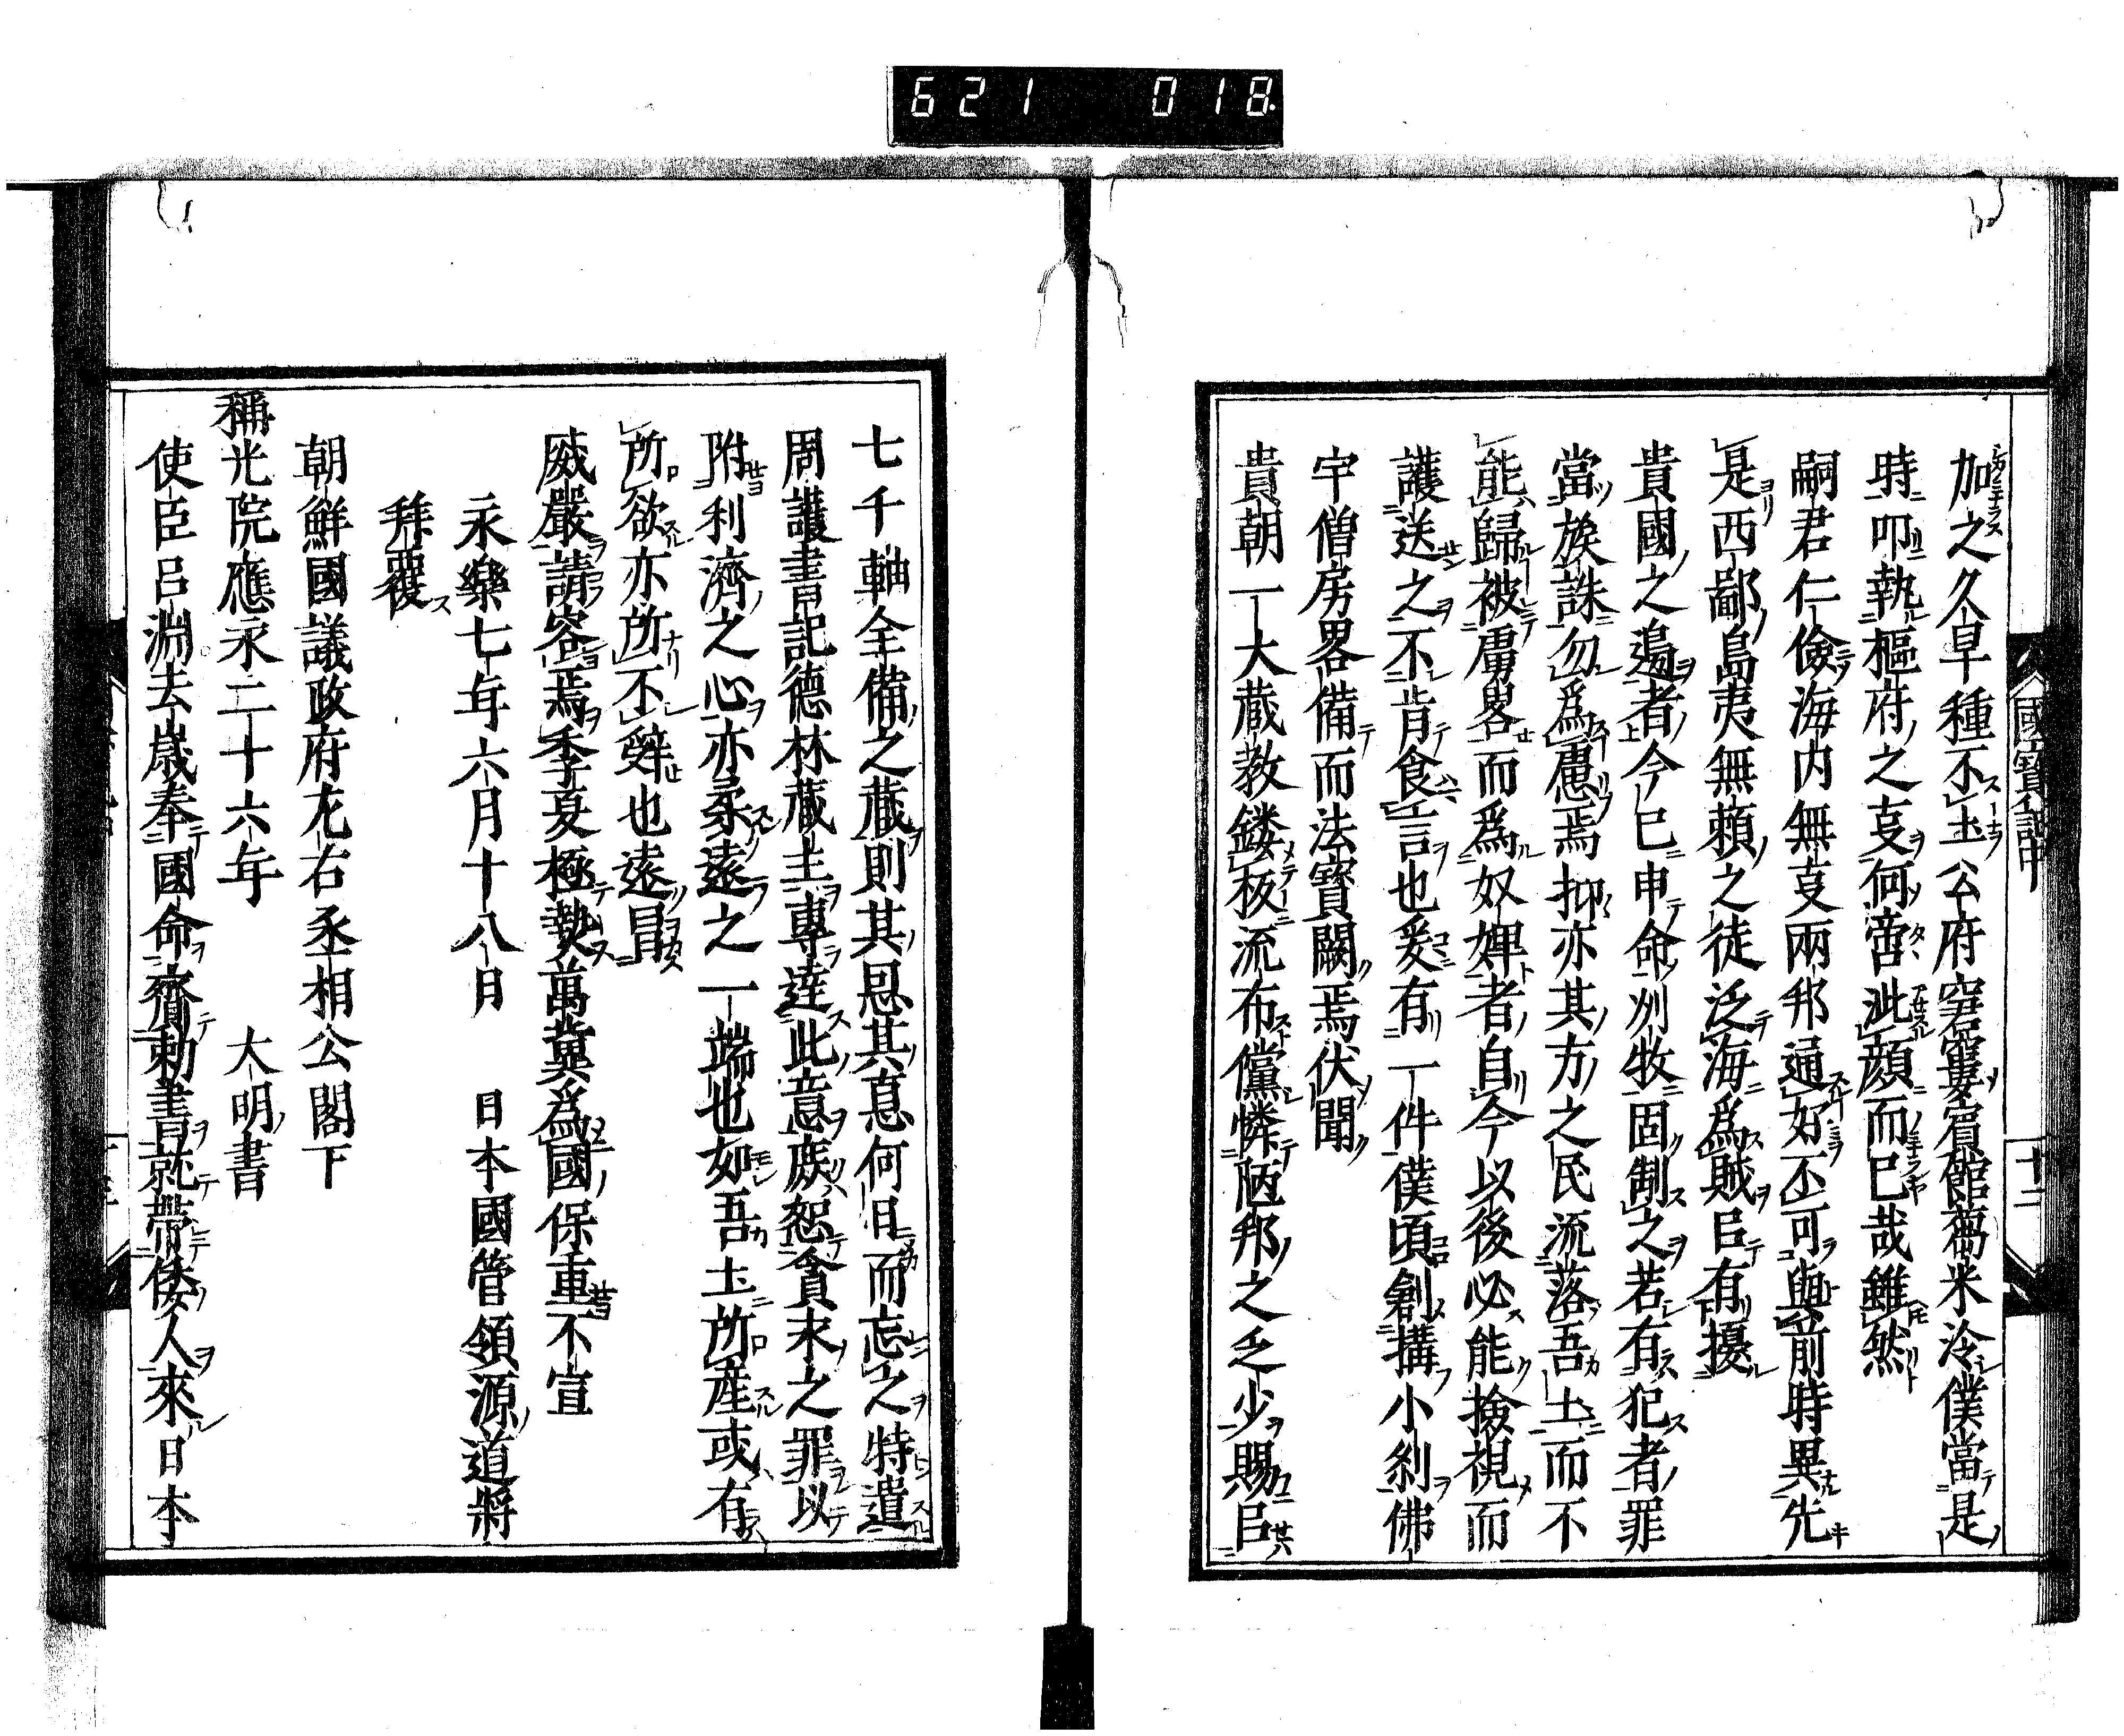 621 018
加之久旱種不土公府窘窶賓館蒭米冷僕當是
時叨執樞府之叓何啻泚顔而已哉雖然
嗣君仁儉海内無叓兩邦通好不可與前時異先
是西鄙島夷無賴之徒泛海爲賊㠯有擾
貴國之邉者今已申命州牧固制之若有犯者罪
當族誅勿爲慮焉抑亦其方之民流落吾土而不
能歸被虜畧而爲奴婢者自今以後必能撿視而
護送之不肯食言也爰有一件僕頃創搆小刹佛
宇僧房畧備而法寳闕焉伏聞
貴朝一大藏教鏤板流布儻憐陋邦之乏少賜㠯
國寳傳中
十二
七千軸全備之藏則其恩其惠何日而忘之特遣
周護書記德林藏主專達此意庶恕貪求之罪以
附利濟之心亦柔遠之一端也如吾土所產或有
所欲亦所不辤也遠冒
威嚴請容焉季夏極𤍠萬冀爲國保重不宣
永樂七年六月十八日 日本國管領源道將
拜覆
朝鮮國議政府左右丞相公閣下
稱光院應永二十六年 大明書
使臣吕淵去歲奉國命齎勅書就帶倭人來日本